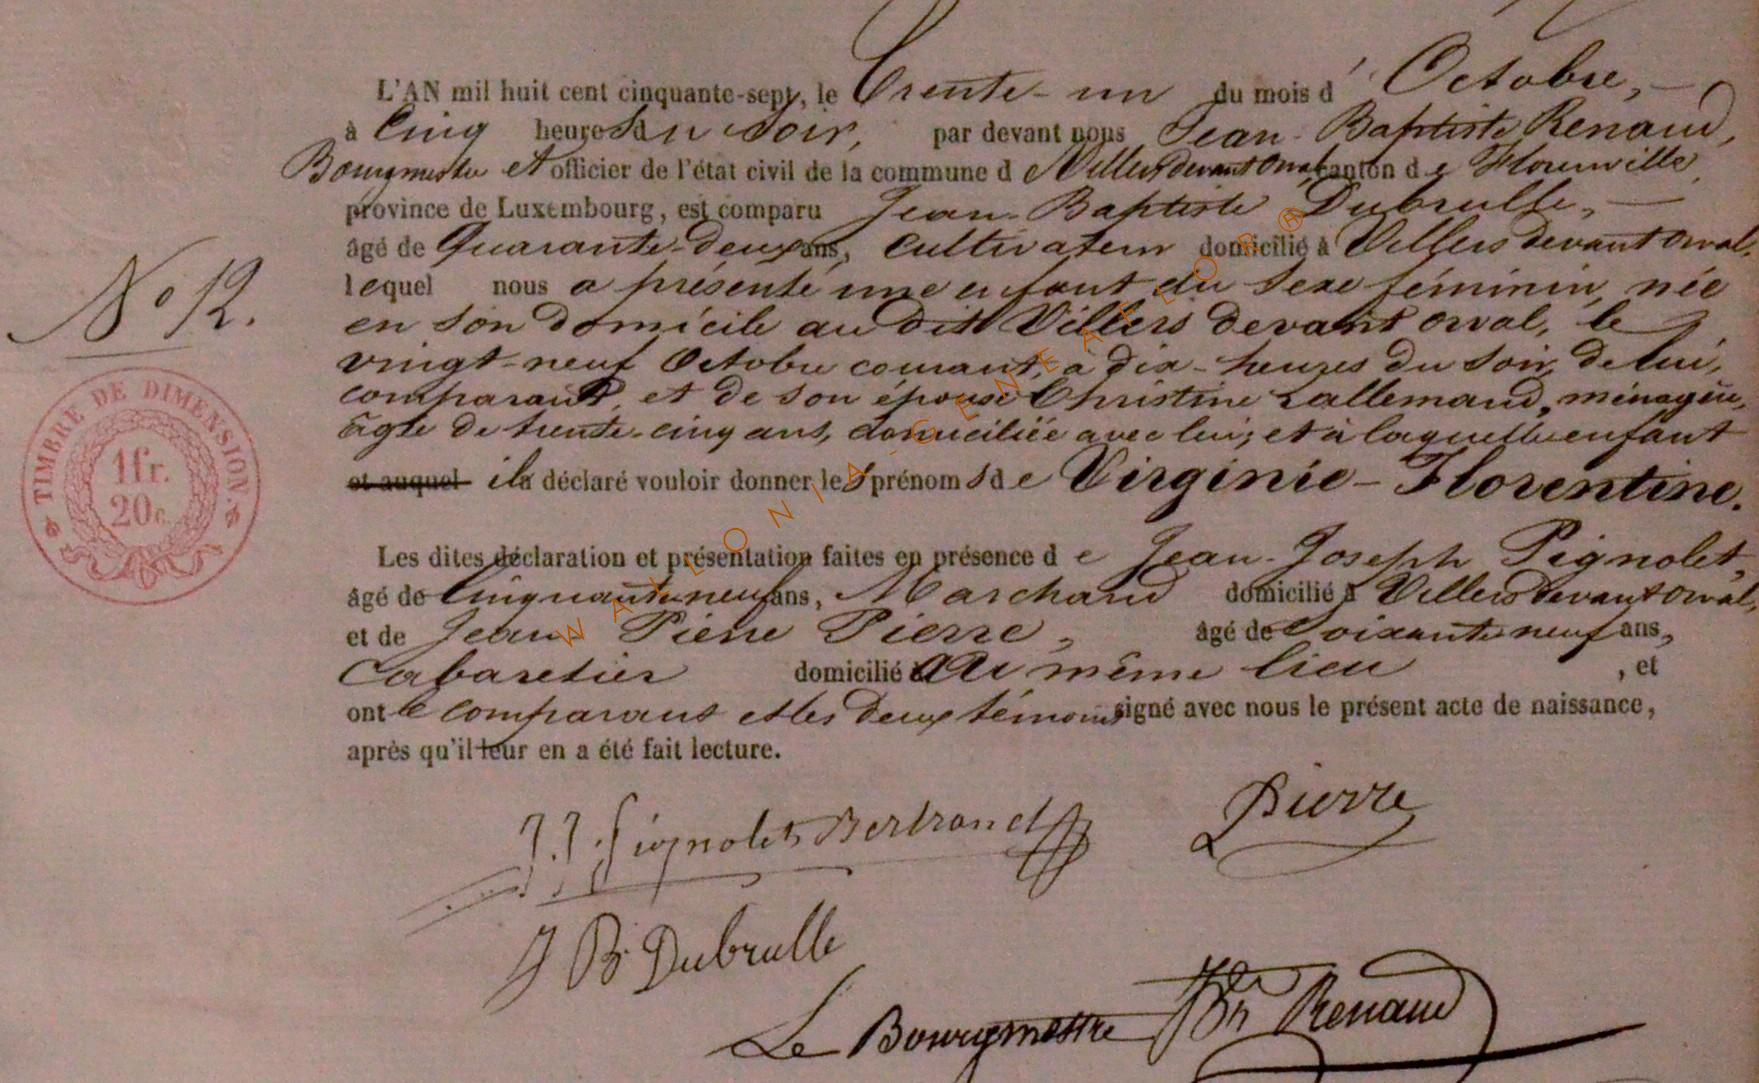 L'AN mil huit cent cinquante-sept, le Trente-un du mois d' Octobre,
à Cinq heures du soir, par devant nous Jean-Baptiste Renaud,
Bourgmestre et officier de l'état civil de la commune de Villers devant Orval canton de Florenville,
province de Luxembourg, est comparu Jean-Baptiste Dubrulle,
âgé de Quarante-deux ans, Cultivateur domicilié à Villers devant orval,
lequel nous a présenté une enfant du sexe féminin, née
en son domicile au dit Villers devant orval, le
vingt-neuf Octobre courant, à dix-heures du soir, de lui,
comparant, et de son épouse Christine Lallemand, ménagère,
âgée de trente-cinq ans, domiciliée avec lui; et à laquelle enfant
et auquel il a déclaré vouloir donner les prénoms de Virginie-Florentine.
Les dites déclaration et présentation faites en présence de Jean-Joseph Pignolet,
âgé de Cinquante neuf ans, Marchand domicilié à Villers devant orval,
et de Jean Pierre Pierre, âgé de Soixante neuf ans,
Cabaretier domicilié au même lieu, et
ont le comparant et les deux témoins signé avec nous le présent acte de naissance,
après qu'il leur en a été fait lecture.
No 12.
TIMBRE DE DIMENSION.
1 fr.
20 c.
WALLONIA-GENEAFLOR®
J.J. Pignolet Bertrand
Pierre
J B Dubrulle
Le Bourgmestre JBn Renaud